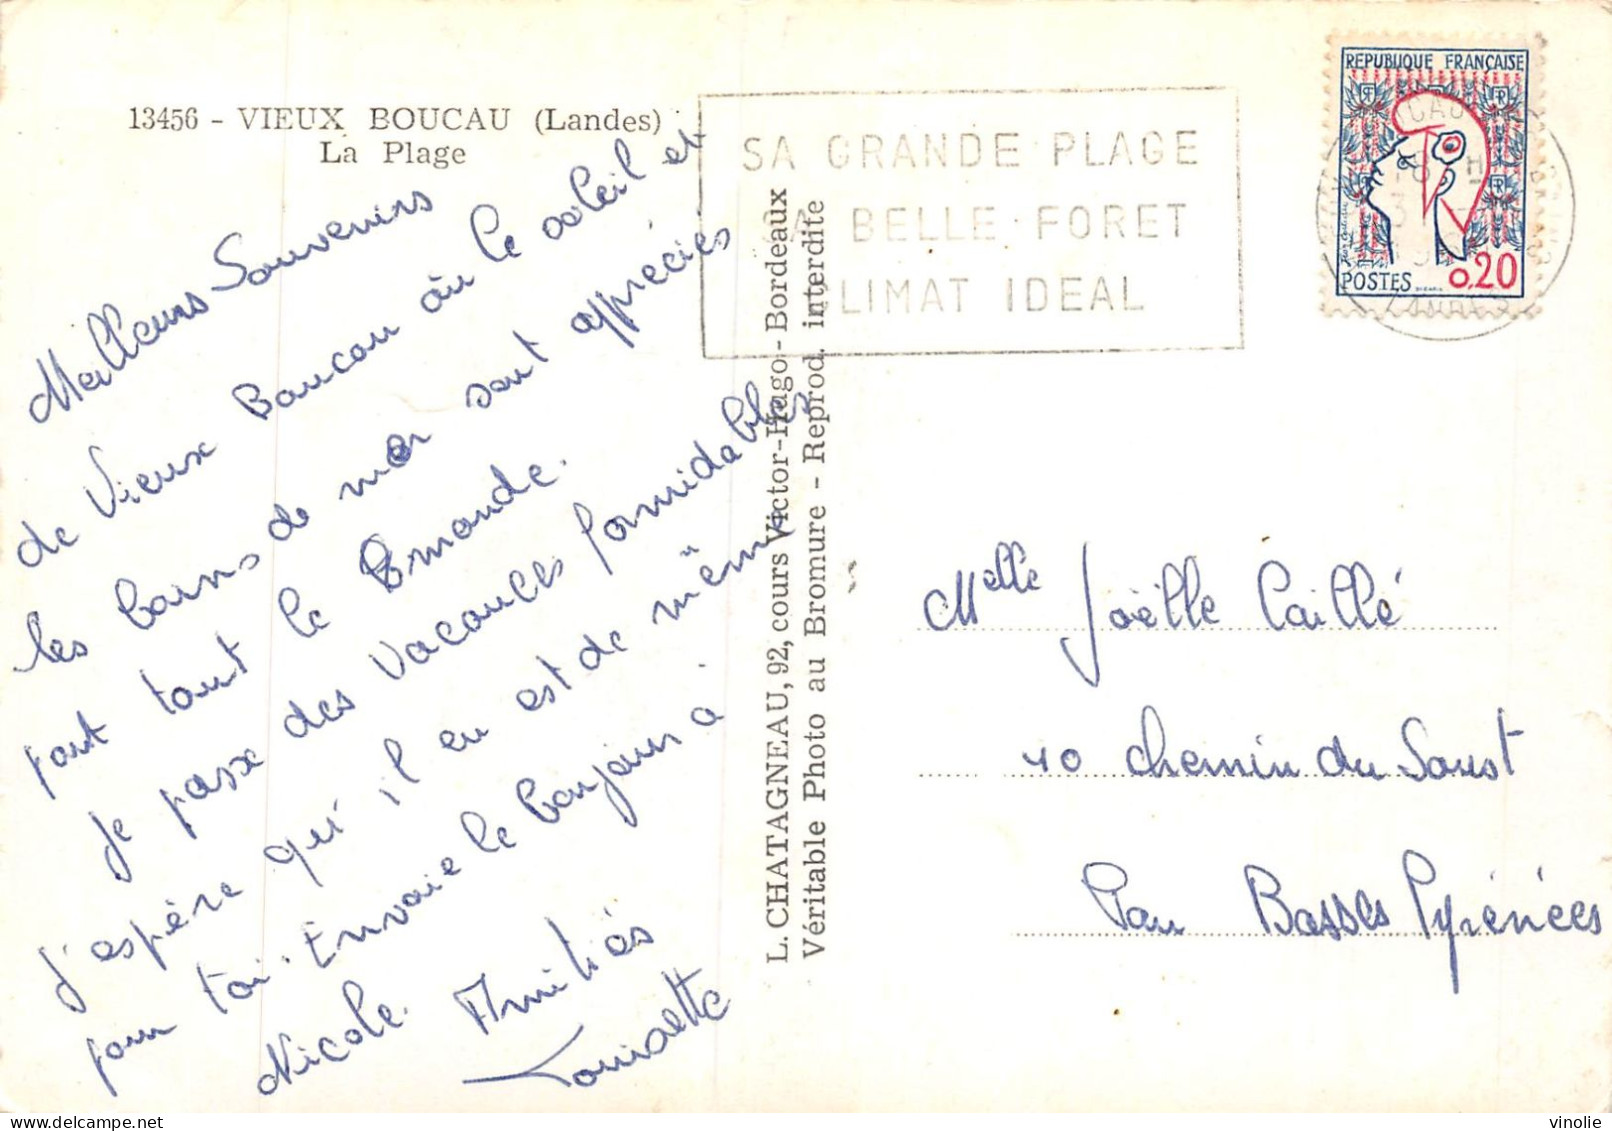 13456 - VIEUX BOUCAU (Landes)
La Plage
Meilleurs Souvenirs
de Vieux Boucau où le soleil et
les bains de mer sont appréciés
par tout le monde.
Je passe des vacances formidables
J'espère qu'il en est de même
pour toi. Envoie le bonjour à
Nicole. Amitiés
Louisette
L. CHATAGNEAU, 92, cours Victor-Hugo - Bordeaux
Véritable Photo au Bromure - Reprod. interdite
SA GRANDE PLAGE
SA BELLE FORET
CLIMAT IDEAL
REPUBLIQUE FRANÇAISE
RF
RF
POSTES
0,20
LANDES
Melle Joëlle Caillé
40 chemin du Soust
Pau Basses Pyrénées
vinolie